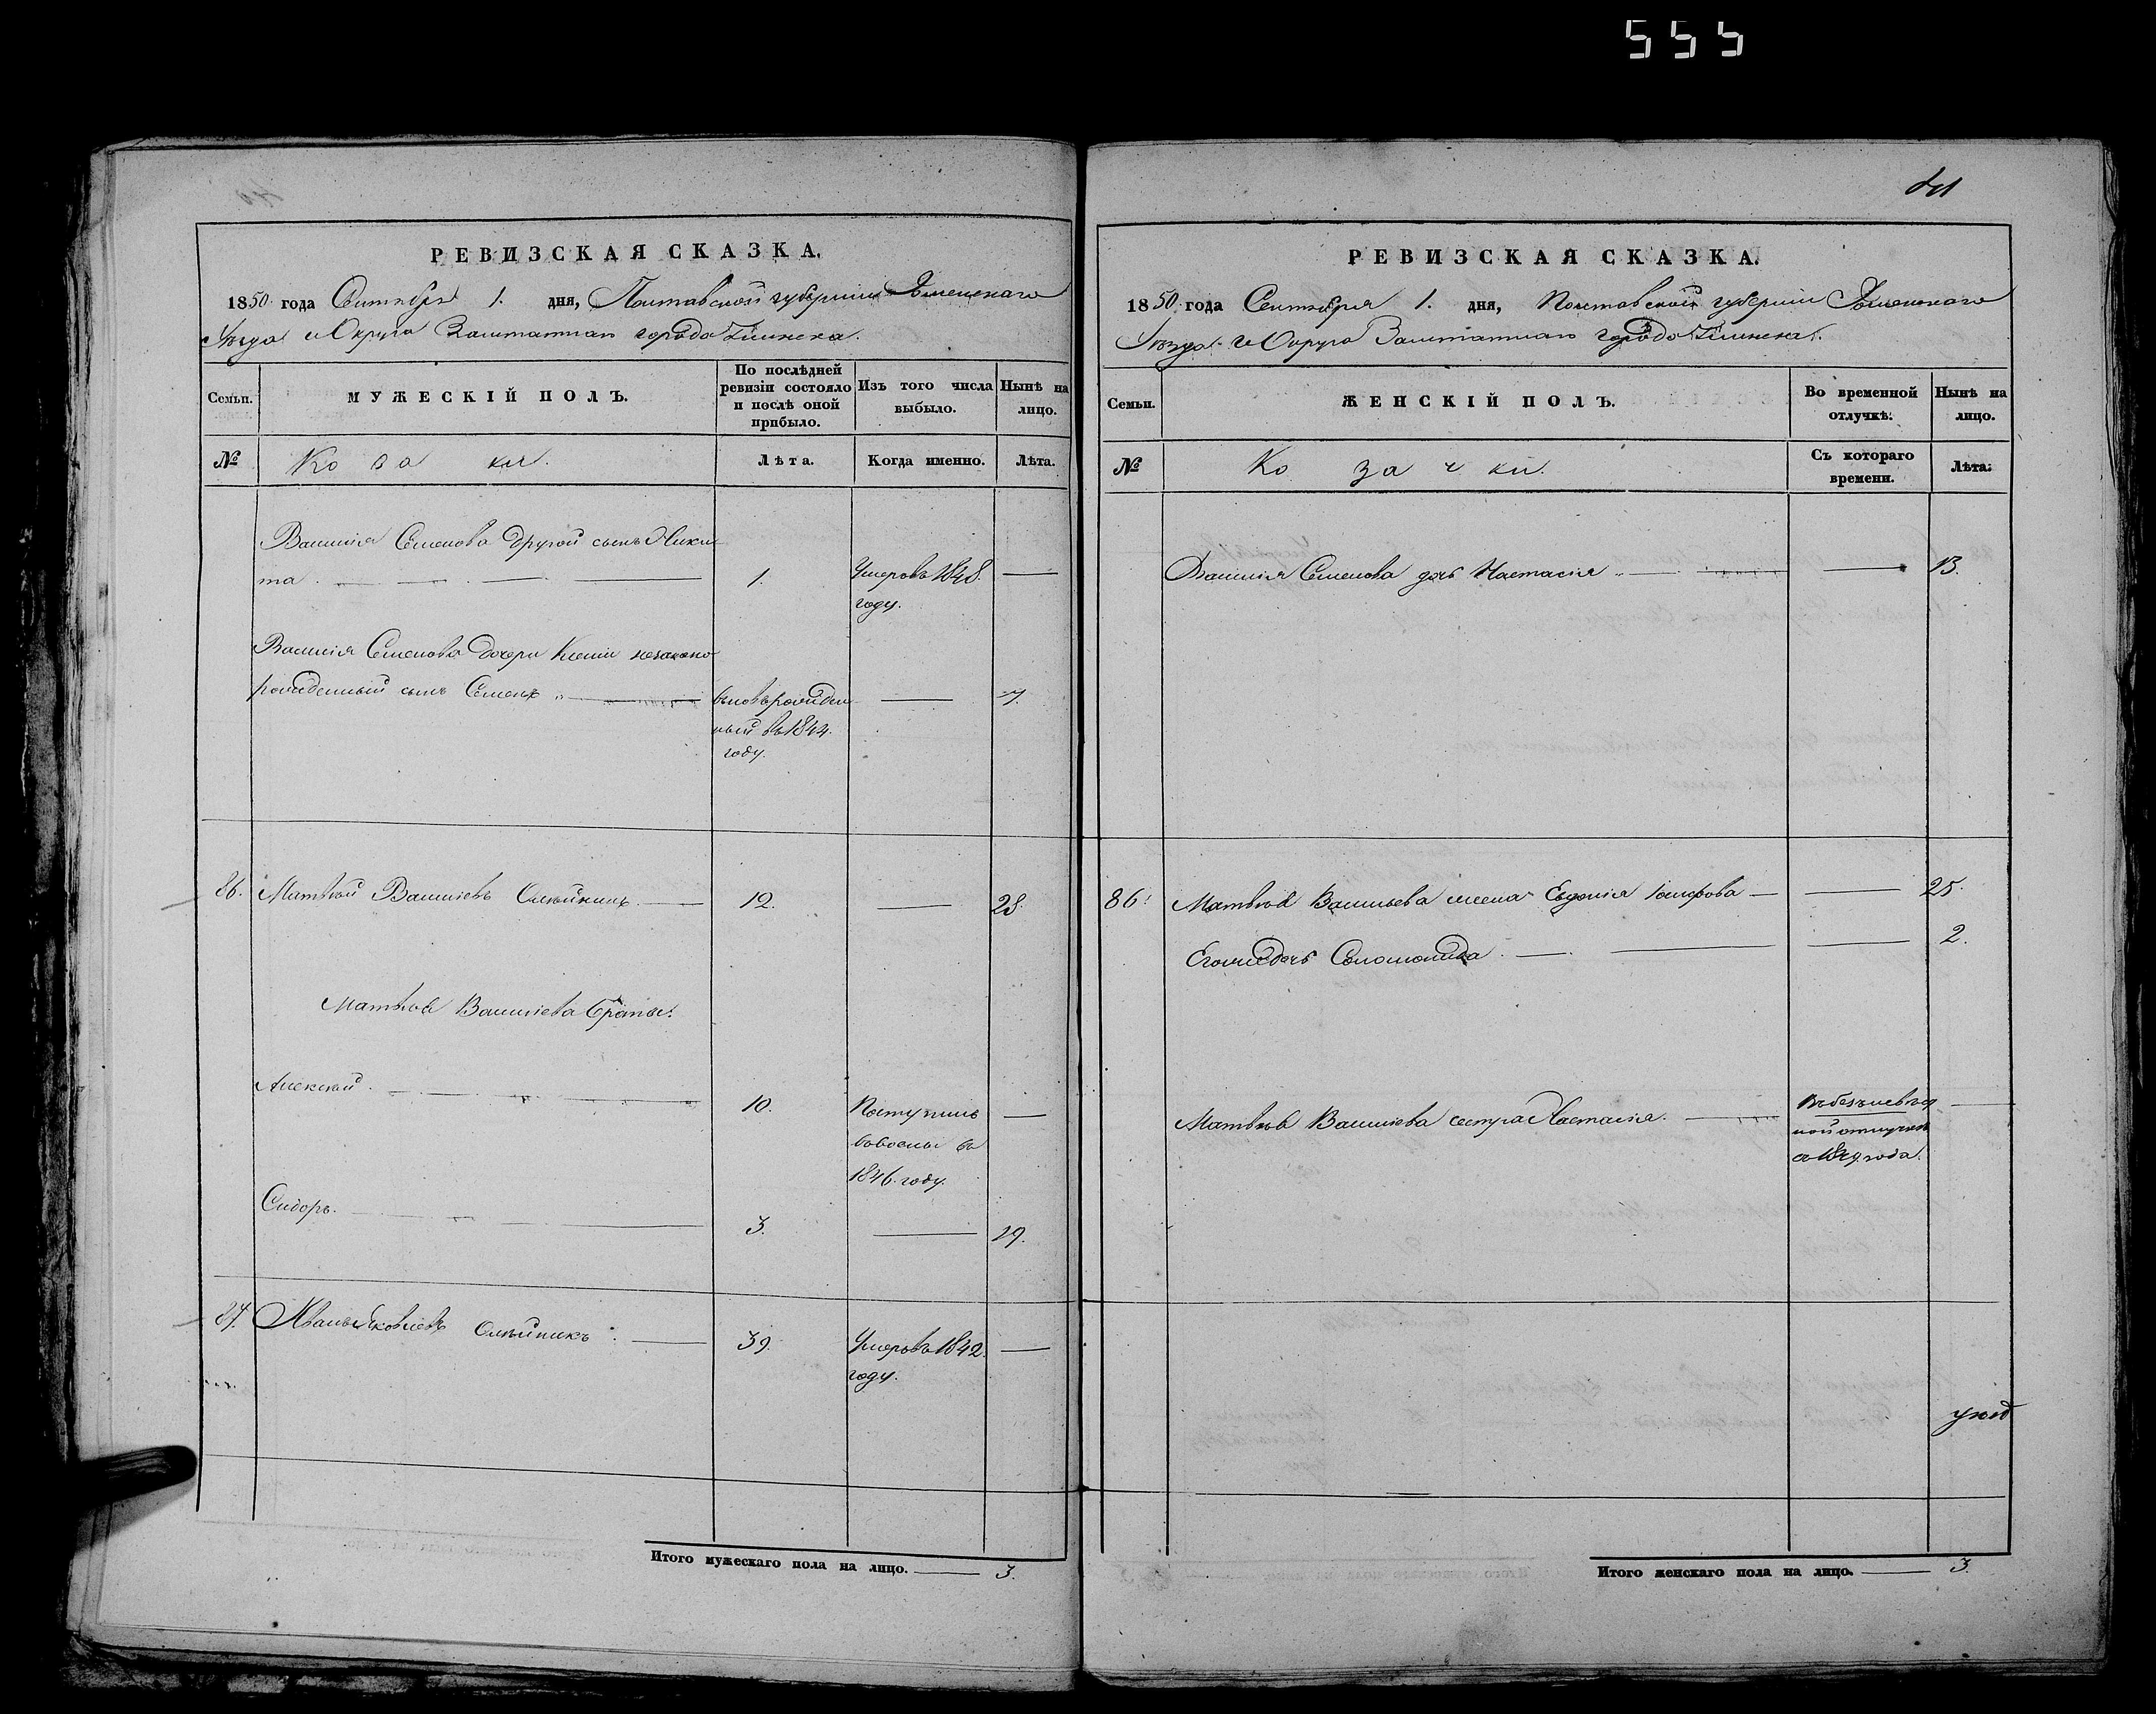 555
РЕВИЗСКАЯ СКАЗКА.
1850 года Сентября 1. дня, Полтавской губернии Роменскаго
Уезда и Округа Заштатнаго города Глинска.
Семьи.
МУЖЕСКІЙ ПОЛЪ.
По послѣдней ревизіи состояло и послѣ оной прибыло.
Изъ того числа выбыло.
Нынѣ на лицо.
№
Козаки.
Лѣта.
Когда именно.
Лѣта.
Василія Семенова другой сынъ Ники-
та 1. Умеръ въ 1848.
году.
Василія Семенова дочери Ксеніи незаконо
рожденный сынъ Семенъ вновьрожден
7.
ный въ 1844.
году.
86. Матвѣй Василіевъ Олѣйникъ. 12. 28.
Матвѣя Василіева братья.
Алексѣй. 10. Поступилъ
1846. году.
Сидоръ. 3. 19.
87. Иванъ Яковлевъ Олѣйникъ. 39. Умеръ въ 1842.
году.
Итого мужескаго пола на лицо. 3.
41
РЕВИЗСКАЯ СКАЗКА.
1850 года Сентября 1. дня, Полтавской губерніи Роменскаго
Уѣзда и Округа Заштатнаго города Глинска.
Семьи.
ЖЕНСКІЙ ПОЛЪ.
Во временной отлучкѣ.
Нынѣ на лицо.
№
Козачки.
Съ котораго времени.
Лѣта.
Василія Семенова дочь Настасія 13.
86. Матвѣя Васильева жена Евдокія 25.
Егоже дочь Соломонида. 2.
Матвѣя Василіева сестра Настасія.
Итого женскаго пола на лицо. 3.